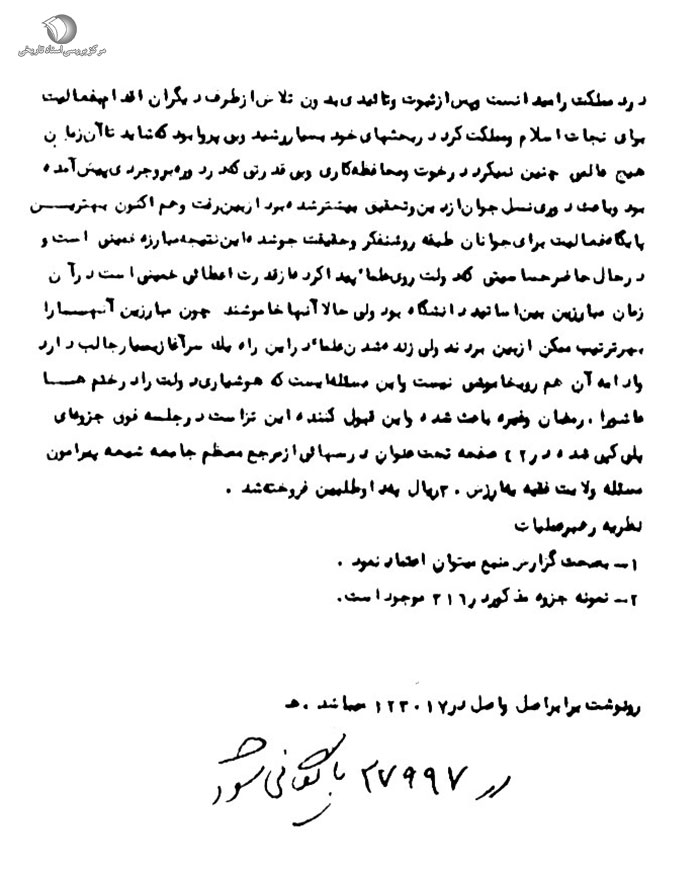 مرکز بررسی اسناد تاریخی
درد مملکت را میدانست وپس از ثبوت وتائیدی بدون تلاش از طرف دیگران اقدام بفعالیت
برای نجات اسلام ومملکت کرد در بحثهای خود بسیار رشید وبی پروا بود که شاید تا آن زمان
هیچ عالمی چنین نمیکرد درخوت ومحافظه کاری وبی قدرتی که در دوره بروجردی پیش آمده
بود وباعث دوری نسل جوان از دین وتحقیق بیشتر شده بود از بین رفت وهم اکنون بهترین
پایگاه فعالیت برای جوانان طبقه روشنفکر وحقیقت جو شده این نتیجه مبارزه خمینی است و
در حال حاضر حساسیتی که دولت روی علما پیدا کرده از قدرت اعطائی خمینی است در آن
زمان مبارزین بین اساتید دانشگاه بود ولی حالا آنها خاموشند چون مبارزین آنها را
بهر ترتیب ممکن از بین بردند ولی زنده شدن علما در این راه یك سرآغاز بسیار جالب دارد
وادامه آن هم روبخاموشی نیست واین مسئله ایست که هوشیاری دولت را در ختم ها
عاشورا ، رمضان وغیره باعث شده واین قبول کننده این تز است در جلسه فوق جزوهای
پلی کپی شده در ۴۲ صفحه تحت عنوان درسهائی از مرجع معظم جامعه شیعه پیرامون
مسئله ولایت فقیه به ارزش ۳۰ ریال بعد اوطلبین فروخته شد .
نظریه رهبر عملیات
۱ــ بصحت گزارش منبع میتوان اعتماد نمود .
۲ــ نمونه جزوه مذکور در ۳۱۶ موجود است .
رونوشت برابر اصل واصل در ۱۲۳۰۱۷ میباشد . ه
در ۲۷۹۹۷ بایگانی شود